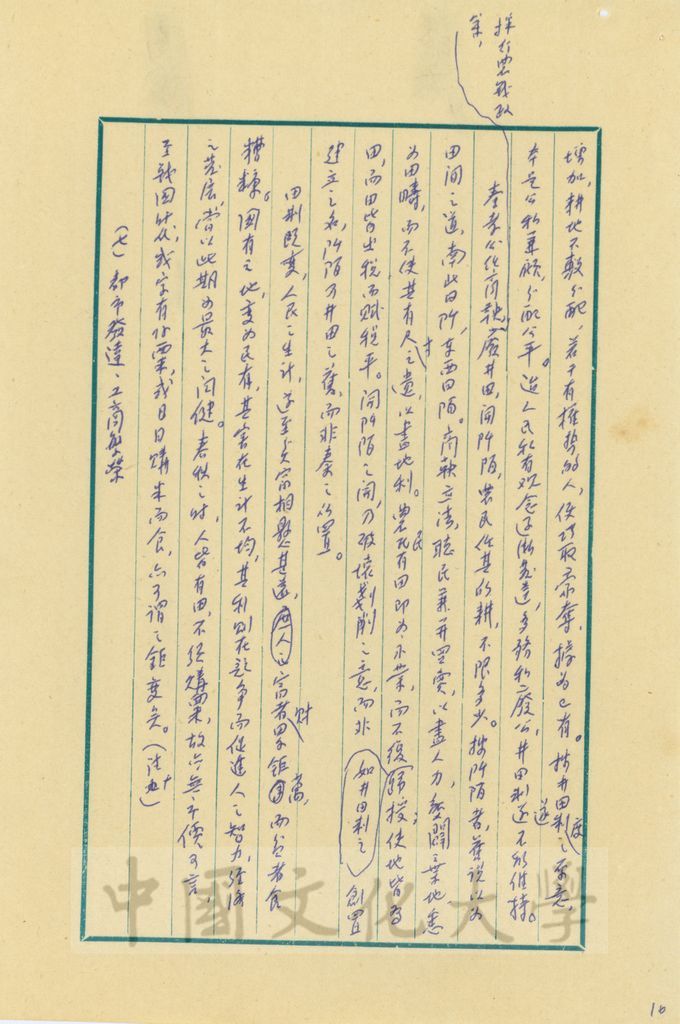 採行農戰政
策，
增加，耕地不敷分配，若干有權勢的人，便巧取豪奪，據為己有。按井田制度之本意，
本是公私兼顧，分配公平。迨人民私有觀念逐漸發達，多務私廢公，井田制遂不能維持。
秦孝公任商鞅，廢井田，開阡陌，農民任其所耕，不限多少。按阡陌者，舊說以為
田間之道，南北曰阡，東西曰陌。商鞅立法，聽民兼并買賣，以盡人力，墾闢棄地悉
為田疇，而不使其有尺寸之遺，以盡地利。農民有田即為永業，而不復歸授；使地皆為
田，而田皆出稅而賦稅平。開阡陌之開，乃破壞剗削之意，而非如井田制之創置
建立之名，阡陌乃井田之舊，而非秦之所置。
田制既變，人民之生計，遂至貧富相懸甚遠，庶人之富者財累鉅萬，而貧者食
糟糠。國有之地，變為民有，其害在生計不均，其利則在競爭而促進人之智力，經濟
之發展，當以此期為最大之關鍵。春秋之時，人皆有田，不須購粟，故亦無市價可言，
至戰國時代，或家有餘粟，或日日購米而食，亦可謂之鉅變矣。（註七十）
（七）都市發達、工商繁榮
16
中國文化大學